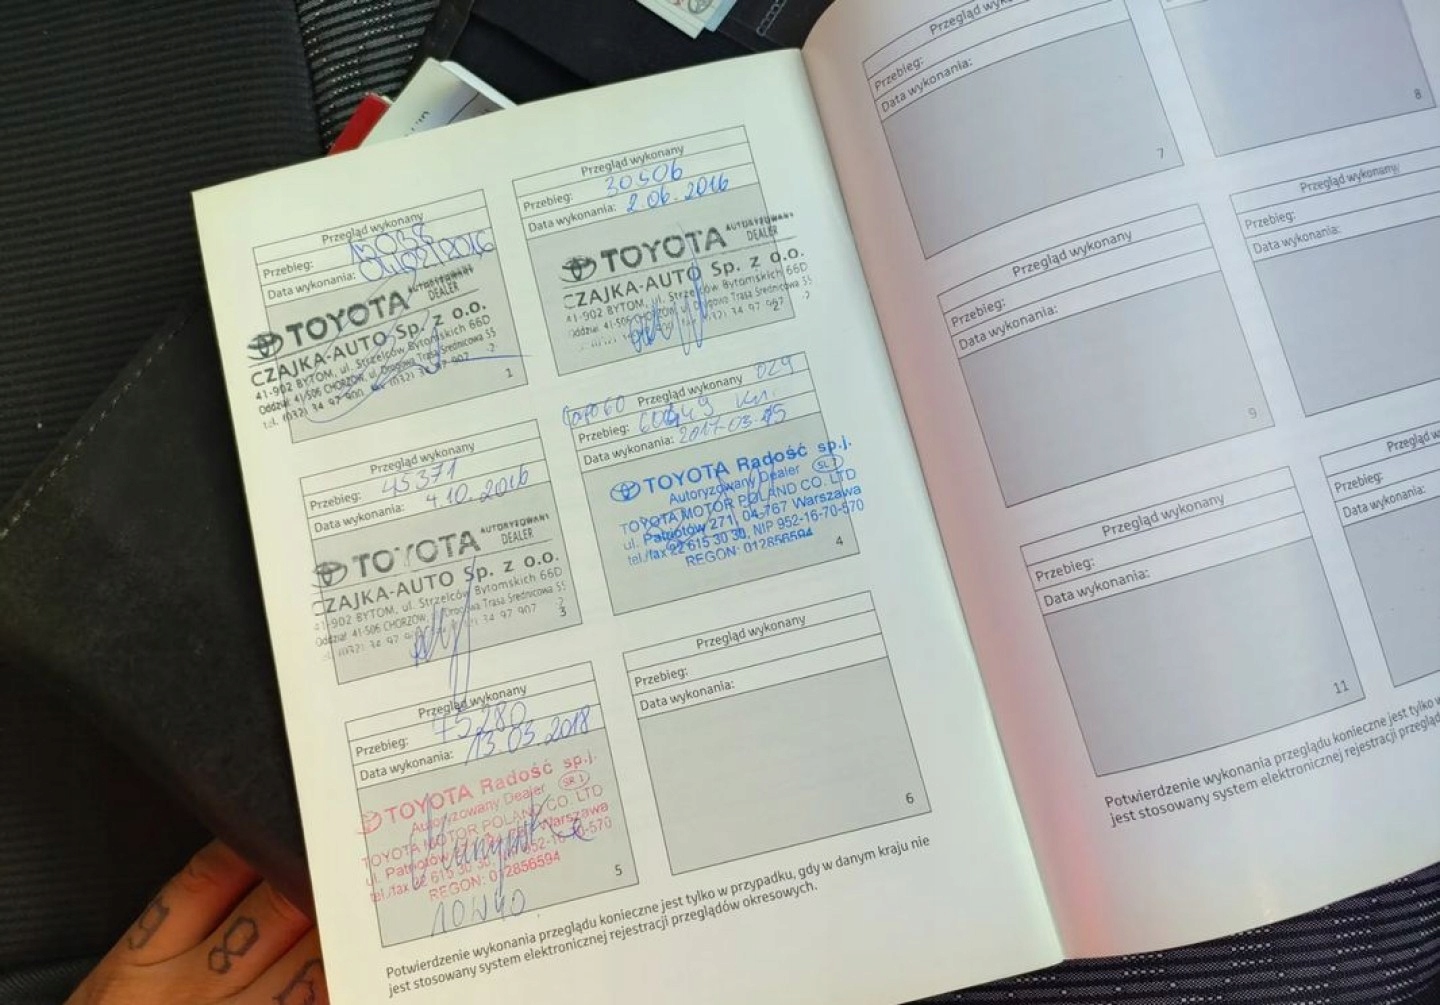 Przegląd wykonany
Przebieg:
Data wykonania:
TOYOTA AUTORYZOWANY
DEALER
CZAJKA-AUTO Sp. z o.o.
41-902 BYTOM, ul. Strzelców Bytomskich 66D
Oddział 41-506 CHORZÓW, ul. Drogowa Trasa Średnicowa 55
tel. (032) 34 97 900
1
Przegląd wykonany
Przebieg: 30506
Data wykonania: 2.06.2016
TOYOTA AUTORYZOWANY
DEALER
CZAJKA-AUTO Sp. z o.o.
41-902 BYTOM, ul. Strzelców Bytomskich 66D
Oddział 41-506 CHORZÓW, ul. Drogowa Trasa Średnicowa 55
(032) 34 97 907
2
Przegląd wykonany
Przebieg: 45371
Data wykonania: 4.10.2016
TOYOTA AUTORYZOWANY
DEALER
CZAJKA-AUTO Sp. z o.o.
41-902 BYTOM, ul. Strzelców Bytomskich 66D
Oddział 41-506 CHORZÓW, ul. Drogowa Trasa Średnicowa 55
(032) 34 97 907
3
Przegląd wykonany
Przebieg:
Data wykonania: 2017-03-15
TOYOTA Radość sp.j.
Autoryzowany Dealer
TOYOTA MOTOR POLAND CO. LTD
ul. Patriotów 271, 04-767 Warszawa
tel./fax 22 615 30 30, NIP 952-16-70-570
REGON: 012856594
4
Przegląd wykonany
Przebieg: 75280
Data wykonania: 13.03.2018
TOYOTA Radość sp.j.
Autoryzowany Dealer SR 1
TOYOTA MOTOR POLAND CO. LTD
ul. Patriotów Warszawa
tel./fax 22 615 30 30, 952-16-70-570
REGON: 012856594
10W40
5
Przegląd wykonany
Przebieg:
Data wykonania:
6
Potwierdzenie wykonania przeglądu konieczne jest tylko w przypadku, gdy w danym kraju nie
jest stosowany system elektronicznej rejestracji przeglądów okresowych.
Przegląd
Przebieg:
Data wykonania:
7
8
Przegląd wykonany
Przebieg:
Data wykonania:
9
Przegląd wykonany
Przebieg:
Data wykonania:
Przegląd wykonany
Przebieg:
Data wykonania:
11
Przegląd
Przebieg:
Data wykonania:
Potwierdzenie wykonania przeglądu konieczne jest tylko
jest stosowany system elektronicznej rejestracji